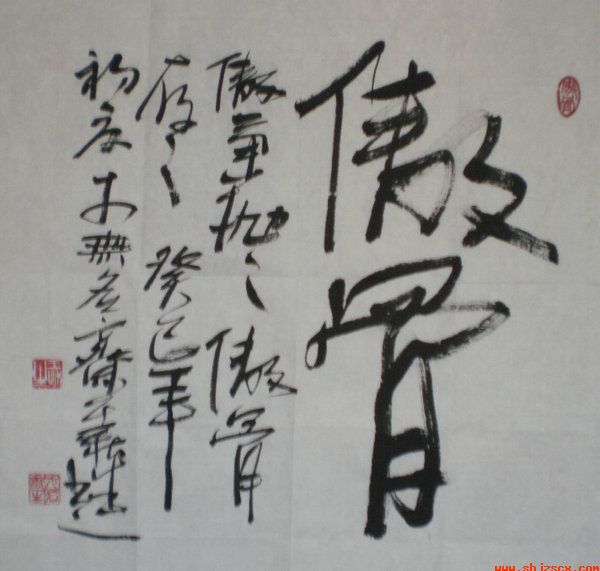 傲骨
傲氣抛之、傲骨
存之、癸巳年
初夏 無名齋
www.shjzscx.com